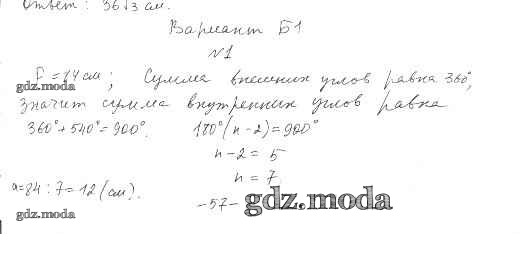 Ответ: 36√3 см.
Вариант Б1
№1
P = 84 см; Сумма внешних углов равна 360°,
gdz.moda
значит сумма внутренних углов равна
360° + 540° = 900°. 180°(n - 2) = 900°
n - 2 = 5
n = 7
a = 84 : 7 = 12 (см).
-57- gdz.moda
gdz.moda